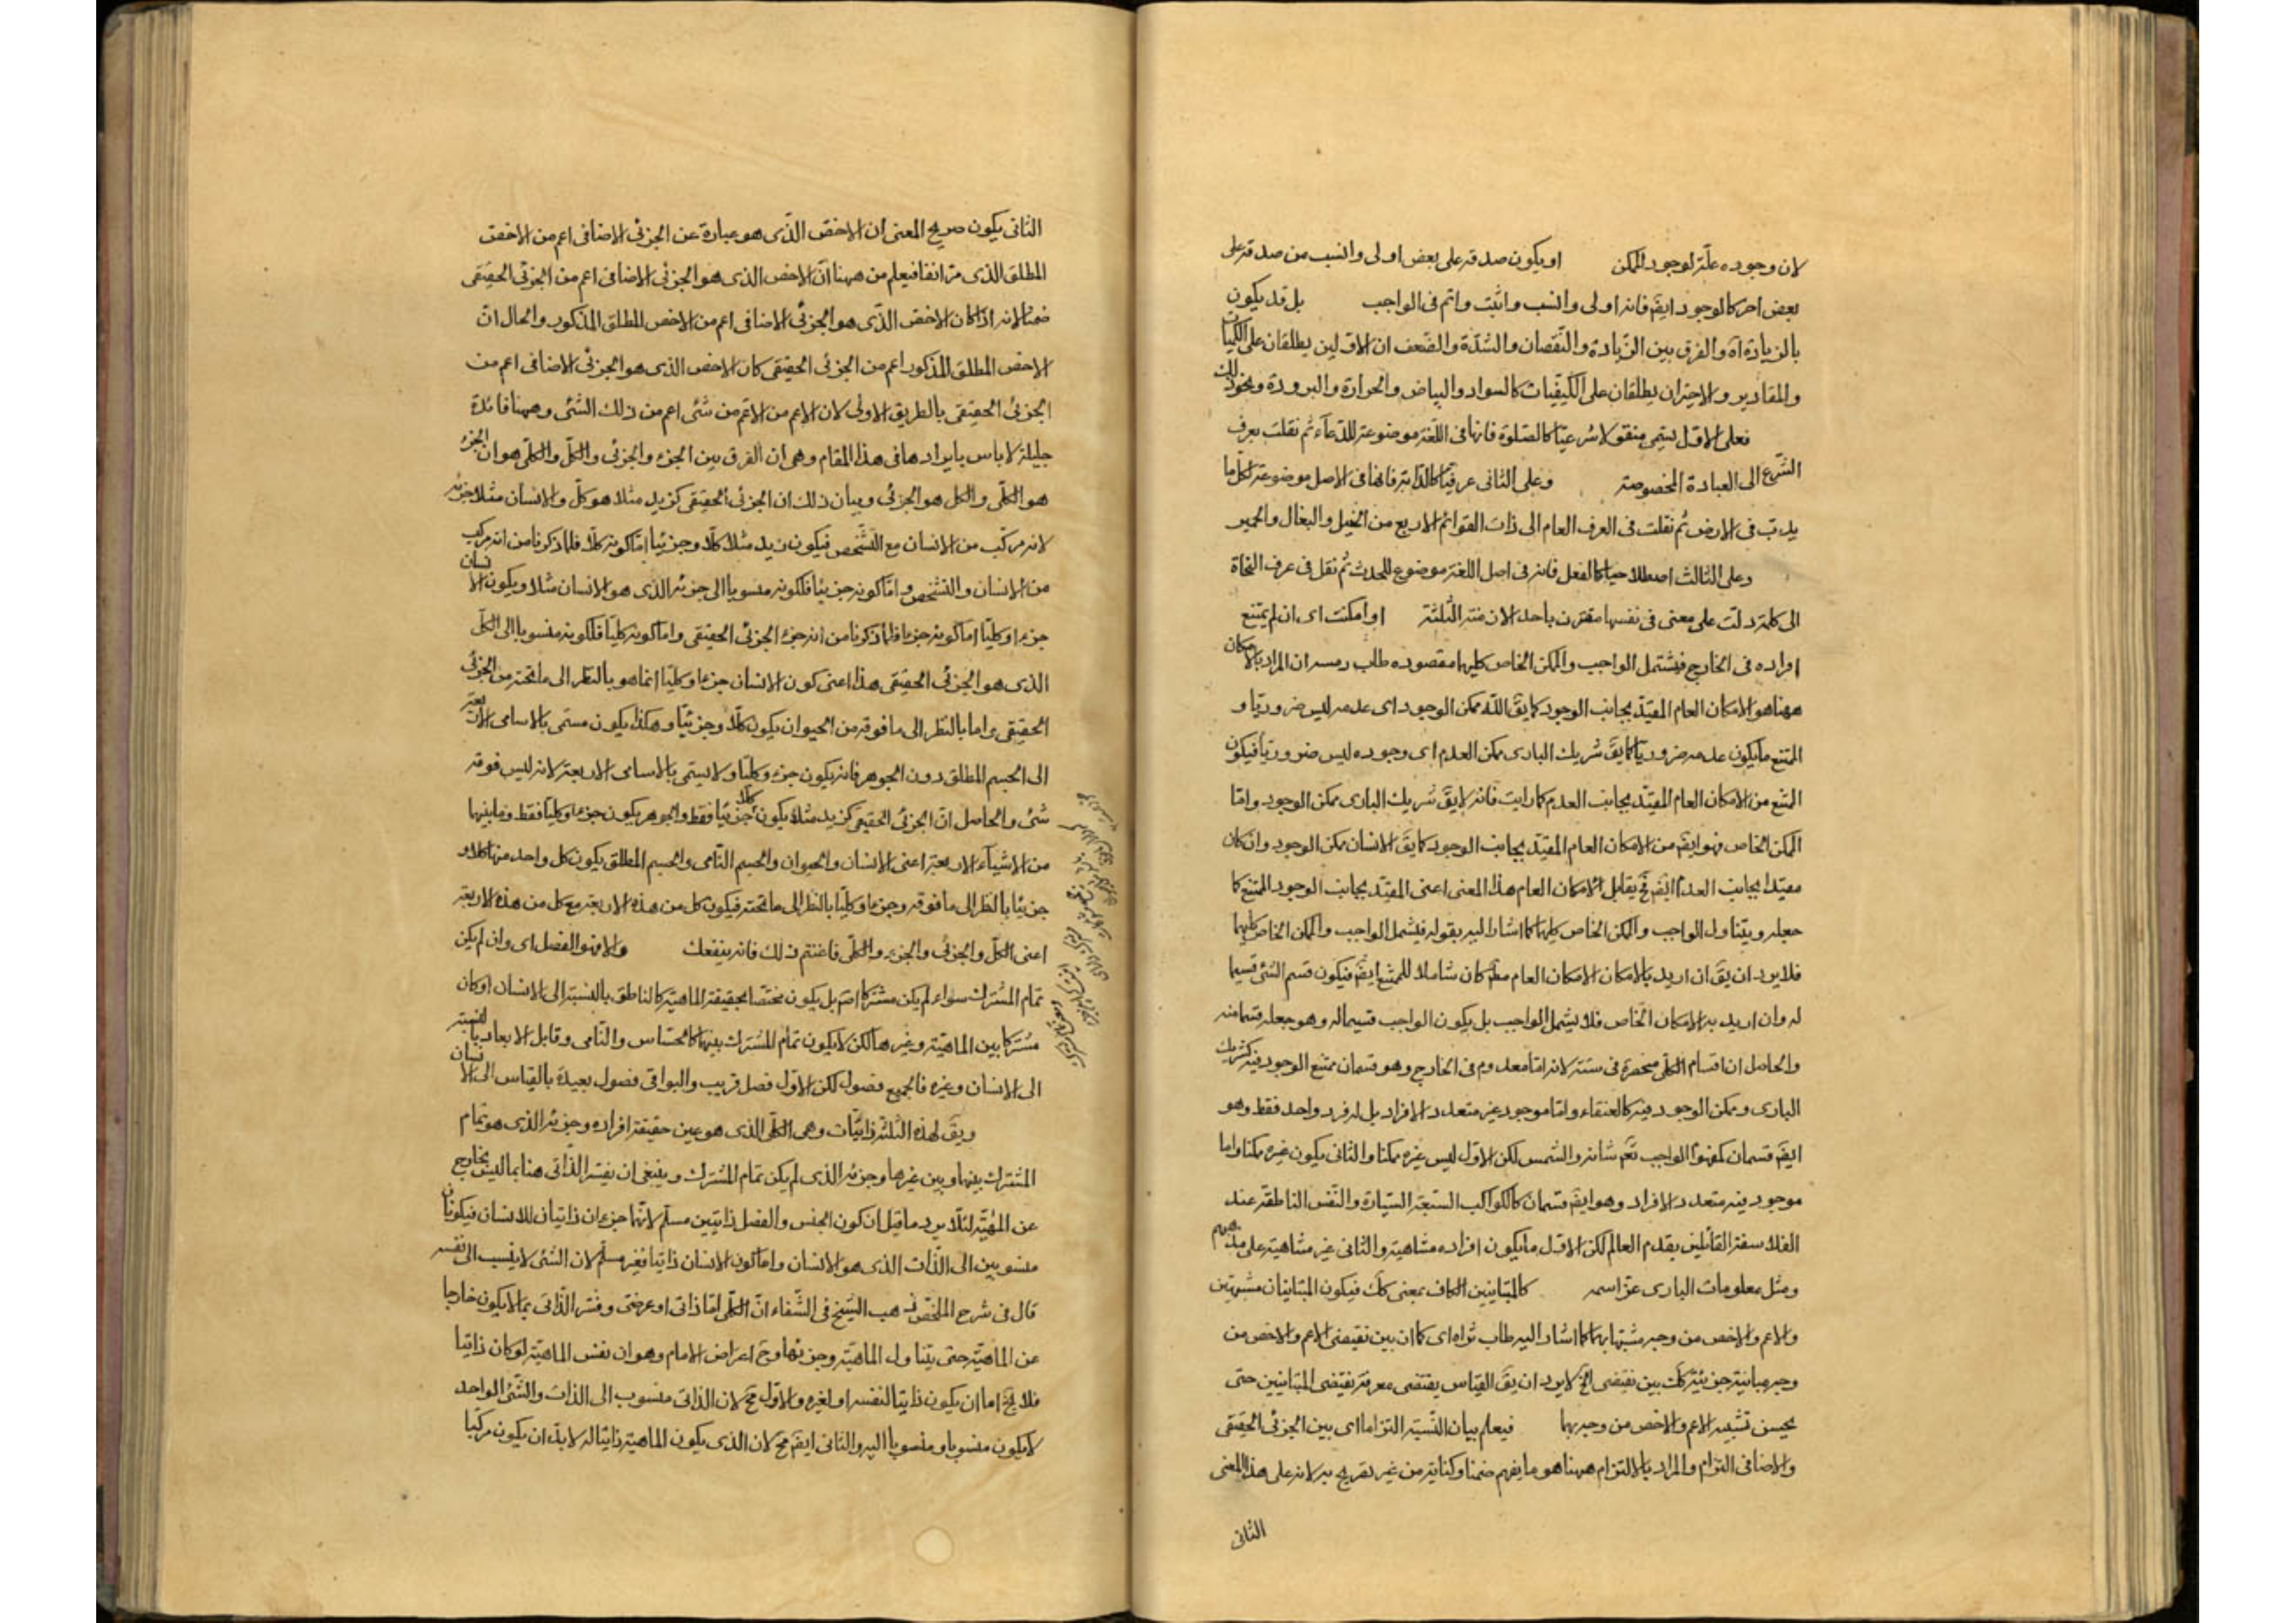 لان وجوده علّة لوجود الممكن او يكون صدقه على بعض اولى وانسب من صدقه على
بعض اخر كالوجود ايضَ فانه اولى وانسب واثبت واتم فى الواجب بل قد يكون
بالزيادة اه والفرق بين الزّيادة والنّقصان والشدّة والضعف ان الاوّلين يطلقان على الكميّات
والمقادير والاخيران يطلقان على الكيفيّات كالسواد والبياض والحرارة والبرودة ونحو ذلك
فعلى الاوّل يسمى منقولا شرعيّا كالصّلوة فانها فى اللّغة موضوعة للدّعاء ثم نقلت بعرف
الشّرع الى العبادة المخصوصة وعلى الثانى عرفيّا كالدّابة فانها فى الاصل موضوعة لكلّ ما
يدبّ فى الارض ثم نقلت فى العرف العام الى ذات القوائم الاربع من الخيل والبغال والحمير
وعلى الثالث اصطلاحيا كالفعل فانه فى اصل اللغة موضوع للحدث ثم نقل فى عرف النحاة
الى كلمة دلّت على معنى فى نفسها مقترن باحد الازمنة الثّلثة او امكنت اى ان لم يمتنع
افراده فى الخارج فيشتمل الواجب والممكن الخاص كليهما مقصوده طاب رمسه ان المراد بالامكان
ههنا هو الامكان العام المقيّد بجانب الوجود كما يقَ اللّه ممكن الوجود اى عدمه ليس ضروريّا و
الممتنع ما يكون عدمه ضروريّا كما يقَ شريك البارى ممكن العدم اى وجوده ليس ضروريّا فيكون
الممتنع من الامكان العام المقيّد بجانب العدم كما رايت فانه لا يقَ شريك البارى ممكن الوجود وامّا
الممكن الخاص فهو ايضَ من الامكان العام المقيّد بجانب الوجود كما يقَ الانسان ممكن الوجود وان كان
مقيّدا بجانب العدم ايضَ فحَ يقابل الامكان العام هذا المعنى اعنى المقيّد بجانب الوجود الممتنع كما
جعله ويتناول الواجب والممكن الخاص كليهما كما اشار اليه بقوله فيشمل الواجب والممكن الخاص كليهما
فلا يرد ان يقَ ان اريد بالامكان الامكان العام مطَ كان شاملا للممتنع ايضَ فيكون قسم الشئ قسيما
له وان اريد به الامكان الخاص فلا يشمل الواجب بل يكون الواجب قسيما له وهو جعله قسما منه
والحاصل ان اقسام الكلّى منحصرة فى ستة لانه امّا معدوم فى الخارج وهو قسمان ممتنع الوجود فيه كشريك
البارى وممكن الوجود فيه كالعنقاء وامّا موجود غير متعدد الافراد بل له فرد واحد فقط وهو
ايضَ قسمان كمفهوم الواجب تعَ شانه والشمس لكن الاوّل ليس غيره ممكنا والثانى يكون غيره ممكنا واما
موجود فيه متعدد الافراد وهو ايضَ قسمان كالكواكب السّبعة السّيارة والنّفس الناطقة عند
الفلاسفة القائلين بقدم العالم لكن الاوّل ما يكون افراده متناهية والثانى غير متناهية على مذهبهم
ومثل معلومات البارى عزّ اسمه كالمتباينين الكاف بمعنى كذلك فيكون المتباينان مشبهين
والاعم والاخص من وجه مشبّها بهما كما اشار اليه طاب ثراه اى كما ان بين نقيضى الاعم والاخص من
وجه مباينة جزئيّة كذلك بين نقيضى الخ لا يرد ان يقَ القياس يقتضى معرفة نقيضى المتباينين حتى
يحسن تشبيه الاعم والاخص من وجه بهما فيعلم بيان النّسبة التزاما اى بين الجزئى الحقيقى
والاضافى التزام والمراد بالالتزام ههنا هو ما يفهم ضمنا وكناية من غير تصريح به لانه على هذا المعنى
الثانى
الثانى يكون صريح المعنى ان الاخصّ الذّى هو عبارة عن الجزئى الاضافى اعم من الاخصّ
المطلق الذى مرّ انفا فيعلم من ههنا انّ الاخص الذى هو الجزئى الاضافى اعم من الجزئى الحقيقى
ضمنا لانه اذا كان الاخصّ الذّى هو الجزئى الاضافى اعم من الاخص المطلق المذكور والحال انّ
الاخص المطلق المذكور اعم من الجزئى الحقيقى كان الاخص الذى هو الجزئى الاضافى اعم من
الجزئى الحقيقى بالطريق الاولى لان الاعم من الاعم من شئ اعم من ذلك الشئ وههنا فائدة
جليلة لا باس بايرادها فى هذا المقام وهى ان الفرق بين الجزء والجزئى والكلّ والكلّى هو ان الجزء
هو الكلّى والكل هو الجزئى وبيان ذلك ان الجزئى الحقيقى كزيد مثلا هو كلّ والانسان مثلا جزئه
لانه مركّب من الانسان مع التشخّص فيكون زيد مثلا كلّا وجزئيا امّا كونه كلّا فلما ذكرنا من انه مركب
من الانسان والتشخص وامّا كونه جزئيّا فلكونه منسوبا الى جزئه الذى هو الانسان مثلا ويكون الانسان
جزءا وكليّا اما كونه جزءا فلما ذكرنا من انه جزء الجزئى الحقيقى واما كونه كليّا فلكونه منسوبا الى الكلّ
الذى هو الجزئى الحقيقى هذا اعنى كون الانسان جزءا وكليّا انما هو بالنظر الى ما تحته من الجزئى
الحقيقى واما بالنظر الى ما فوقه من الحيوان يكون كلّا وجزئيّا وهكذا يكون مسمّى بالاسامى الاربعة
الى الجسم المطلق دون الجوهر فانه يكون جزء وكليّا ولا يسمى بالاسامى الاربعة لانه ليس فوقه
شئ والحاصل انّ الجزئى الحقيقى كزيد مثلا يكون كلّا وجزئيّا فقط والجوهر يكون جزءا وكليّا فقط وما بينهما
من الاشياء الاربعة اعنى الانسان والحيوان والجسم النّامى والجسم المطلق يكون كل واحد منها كلّا و
جزئيّا بالنظر الى ما فوقه وجزءا وكليّا بالنظر الى ما تحته فيكون كل من هذه الاربعة مع كل من هذه الاربعة
اعنى الكلّ والجزئى والجزء والكلّى فاغتنم ذلك فانه ينفعك والا فهو الفصل اى وان لم يكن
تمام المشترك سواء لم يكن مشتركا اصَ بل يكون مختصّا بحقيقة الماهيّة كالناطق بالنسبة الى الانسان او كان
مشتركا بين الماهيّة وغيرها لكن لا يكون تمام المشترك بينهما كالحسّاس والنّامى وقابل الابعاد بالنسبة
الى الانسان وغيره فالجميع فصول لكن الاوّل فصل قريب والبواقى فصول بعيدة بالقياس الى الانسان
ويقَ لهذه الثلثة ذاتيّات وهى الكلّى الذى هو عين حقيقة افراده وجزئه الذى هو تمام
المشترك بينها وبين غيرها وجزئه الذى لم يكن تمام المشترك وينبغى ان يفسّر الذّاتى هنا بما ليس بخارج
عن المهيّة لئلّا يرد ما قيل ان كون الجنس والفصل ذاتيين مسلّم لانّهما جزءان ذاتيان للانسان فيكونان
منسوبين الى الذّات الذى هو الانسان واما كون الانسان ذاتيا فغير مسلّم لان الشئ لا ينسب الى نفسه
قال فى شرح الملخّص ذهب الشيخ فى الشّفاء انّ الكلّى امّا ذاتى او عرضى وفسّر الذّاتى بما لا يكون خارجا
عن الماهيّة حتى يتناول الماهيّة وجزئها وحَ اعراض الامام وهو ان نفس الماهيّة لو كان ذاتيا
فلا يخَ اما ان يكون ذاتيا لنفسه او لغيره والاوّل محَ لان الذاتى منسوب الى الذات والشّئ الواحد
لا يكون منسوبا ومنسوبا اليه والثانى ايضَ محَ لان الذى يكون الماهية ذاتيا له لا بدّ ان يكون مركّبا